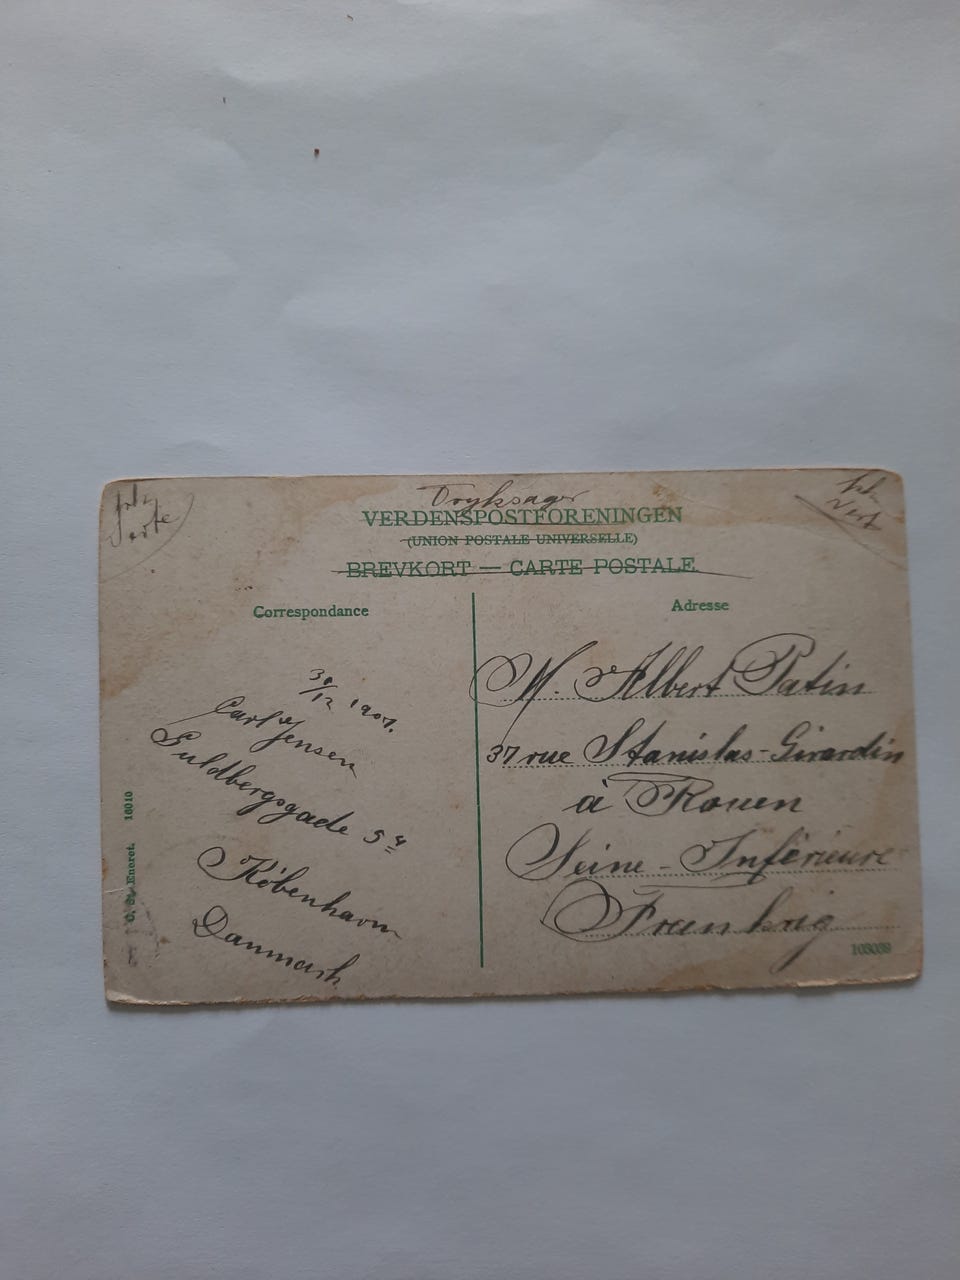 Tryksager
VERDENSPOSTFORENINGEN
(UNION POSTALE UNIVERSELLE)
BREVKORT — CARTE POSTALE
Correspondance
30/12 1907.
Carl Jensen
Guldbergsgade 5 4
København
Danmark
C. St. Eneret. 16010
Adresse
M. Albert Patin
37 rue Stanislas-Girardin
à Rouen
Seine-Inférieure
Frankrig
103039